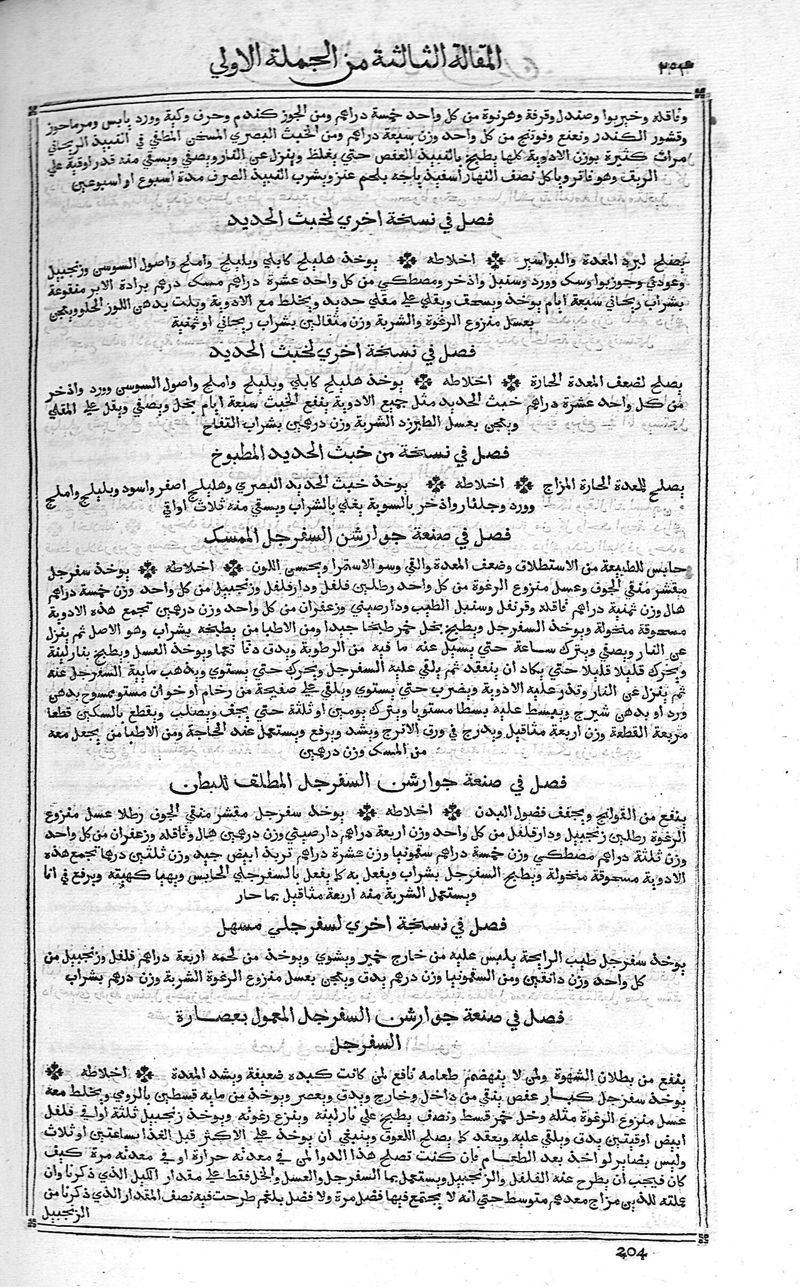 ٢٠٤
المقالة الثالثة من الجملة الاولي
وناقله وخيربوا وصندل وقرفة وهرنوة من كل واحد خمسة دراهم ومن الجوز كندم وحرف وكية وورد يابس ومرماحوز
وقشور الكندر ونعنع وفوتنج من كل واحد وزن سبعة دراهم ومن الخبث البصري المسخن المطفي في النبيذ الريحاني
مرات كثيرة بوزن الادوية كلها يطبخ بالنبيذ العفص حتي يغلظ وينزل عن النار ويصفي ويسقي منه قدر اوقية علي
الريف وهو فاتر وياكل نصف النهار اسفيذ باجه بلحم عنز ويشرب النبيذ الصرف مدة اسبوع او اسبوعين
فصل في نسخة اخري لخبث الحديد
يصلح لبرد المعدة والبواسير اخلاطه يوخذ هليلج كابلي وبليلج واملج واصول السوسن وزنجبيل
وعودني وجوزبوا وسك وورد وسنبل واذخر ومصطكي من كل واحد عشرة دراهم مسك درهم برادة الابر منقوعة
بشراب ريحاني سبعة ايام يوخذ ويسحف ويقلي علي مقلي حديد ويخلط مع الادوية ويلت بدهن اللوز الحلو ويعجن
بعسل منزوع الرغوة والشربة وزن مثقالين بشراب ريحاني او تمنية
فصل في نسخة اخري لخبث الحديد
يصلح لضعف المعدة الحارة اخلاطه يوخذ هليلج كابلي وبليلج واملج واصول السوسن وورد واذخر
من كل واحد عشرة دراهم خبث الحديد مثل جميع الادوية ينقع الخبث سبعة ايام بخل ويصفي ويقل علي المقلي
ويعجن بعسل الطبرزد الشربة وزن درهمين بشراب التفاح
فصل في نسخة من خبث الحديد المطبوخ
يصلح للمعدة الحارة المزاج اخلاطه يوخذ خبث الحديد البصري وهليلج اصفر واسود وبليلج واملج
وورد وجلنار واذخر بالسوية يغلي بالشراب ويسقي منه ثلاث اواقي
فصل في صنعة جوارشن السفرجل الممسك
حابس للطبيعة من الاستطلاق وضعف المعدة والقي وسو الاستمرا ويحسن اللون اخلاطه يوخذ سفرجل
مقشر منقي الجوف وعسل منزوع الرغوة من كل واحد رطلين فلفل ودارفلفل وزنجبيل من كل واحد وزن خمسة دراهم
هال وزن ثمنية دراهم ناقله وقرنفل وسنبل الطيب ودارصيني وزعفران من كل واحد وزن درهمين تجمع هذه الادوية
مسحوقة منخولة ويوخذ السفرجل ويطبخ بخل خمر طبخا جيدا ومن الاطبا من يطبخه بشراب وهو الاصل ثم ينزل
عن النار ويصفي ويترك ساعة حتي يسيل عنه ما فيه من الرطوبة ويدق دقا نعما ويوخذ العسل ويطبخ بنار لينة
ويحرك قليلا قليلا حتي يكاد ان ينعقد ثم يلقي عليه السفرجل ويحرك حتي يستوي ويذهب مايية السفرجل عنه
ثم ينزل عن النار وتذر عليه الادوية ويضرب حتي يستوي ويلقي علي صفيحة من رخام او خوان مستو ممسوح بدهن
ورد او بدهن شيرج ويبسط عليه بسطا مستويا ويترك يومين او ثلثة حتي يجف ويصلب ويقطع بالسكين قطعا
مربعة القطعة وزن اربعة مثاقيل ويدرج في ورق الاترج ويشد ويرفع ويستعمل عند الحاجة ومن الاطبا من يجعل معه
من المسك وزن درهمين
فصل في صنعة جوارشن السفرجل المطلف للبطن
ينفع من القولنج ويجفف فضول البدن اخلاطه يوخذ سفرجل مقشر منقي الجوف رطلا عسل منزوع
الرغوة رطلين زنجبيل ودارفلفل من كل واحد وزن اربعة دراهم دارصيني وزن درهمين هال وناقله وزعفران من كل واحد
وزن ثلثة دراهم مصطكي وزن خمسة دراهم سقمونيا وزن عشرة دراهم تربد ابيض جيد وزن ثلثين درهما تجمع هذه
الادوية مسحوقة منخولة ويطبخ السفرجل بشراب ويفعل به كما يفعل بالسفرجلي الحابس ويهيا كهيته ويرفع في انا
ويستعمل الشربة منه اربعة مثاقيل بما حار
فصل في نسخة اخري لسفرجلي مسهل
يوخذ سفرجل طيب الرايحة يلبس عليه من خارج خمير ويشوي ويوخذ من لحمه اربعة دراهم فلفل وزنجبيل من
كل واحد وزن دانقين ومن السقمونيا وزن درهم يدق ويعجن بعسل منزوع الرغوة الشربة وزن درهم بشراب
فصل في صنعة جوارشن السفرجل المعمول بعصارة
السفرجل
ينفع من بطلان الشهوة ولمن لا ينهضم طعامه نافع لمن كانت كبده ضعيفة ويشد المعدة اخلاطه
يوخذ سفرجل كبار عفص ينقي من داخل وخارج ويدق ويعصر ويوخذ من مايه قسطين بالرومي ويخلط معه
عسل منزوع الرغوة مثله وخل خمر قسط ونصف يطبخ علي نار لينة وينزع رغوته ويوخذ زنجبيل ثلثة اواقي فلفل
ابيض اوقيتين يدق ويلقي عليه ويعقد كما يصلح اللعوق وينبغي ان يوخذ علي الاكثر قبل الغذا بساعتين او ثلاث
وليس بضاير لو اخذ بعد الطعام فان كنت تصلح هذا الدوا لمن في معدته حرارة او في معدته مرة كيف
كان فيجب ان يطرح عنه الفلفل والزنجبيل ويستعمل بما السفرجل والعسل والخل فقط علي مقدار الكيل الذي ذكرنا وان
عملته للذين مزاج معدهم متوسط حتي انه لا يجتمع فيها فضل مرة ولا فضل بلغم طرحت فيه نصف المقدار الذي ذكرنا من
الزنجبيل
204